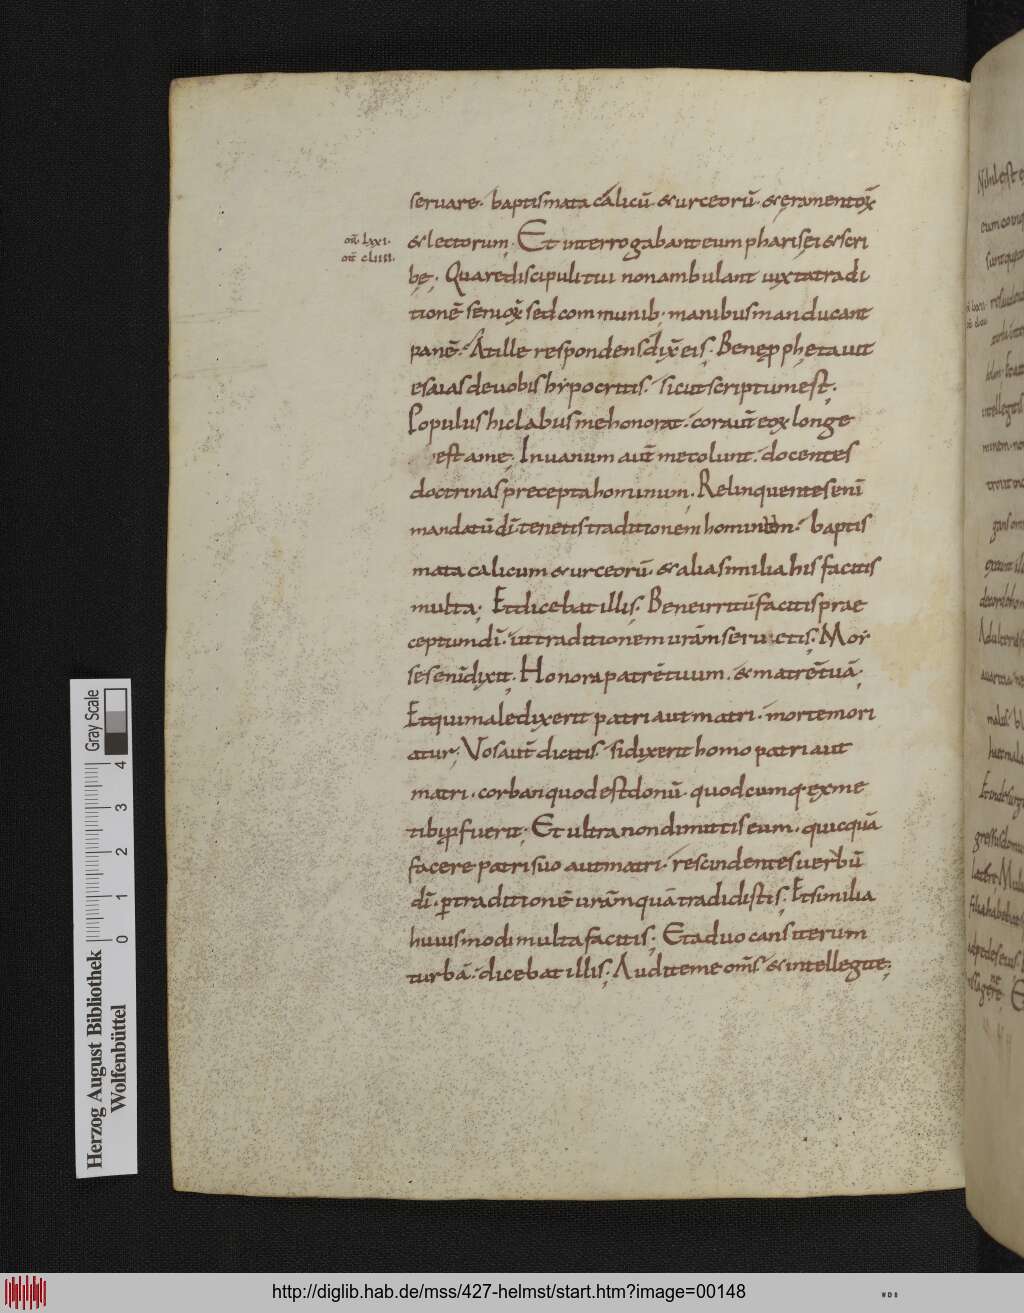 seruare· baptismata calicũ &urceorũ· &ęramentoꝝ
om̃ lxxi·
om̃ cliiii·
&lectorum; Et interrogabanteum pharisęi &scri
bę; Quarediscipulitui nonambulant iuxtatradi
tionẽ senioꝝ sedcommunib; manibusmanducant
panẽ; Atille respondensdix̃ eis; Benęꝓphętauit
esaiasdeuobis hẏpocritis· sicutscriptumest;
Populushiclabusmehonorat· coraut̃ eoꝝ longe
estame; Inuanum aut̃ mecolunt· docentes
doctrinaspreceptahominum; Relinquentesenĩ
mandatũ dĩ· tenetistraditionem hominum· baptis
mata calicum &urceorũ· &aliasimilia his facitis
multa; Etdicebatillis; Beneirritũfacitisprae
ceptumdĩ· uttraditionem urãmseruetis; Moẏ
sesenĩdixit; Honorapatrẽtuum· &matrẽtuã;
Etquimaledixerit patri autmatri· mortemori
atur; Vosaut̃ dicitis· sidixerit homo patri aut
matri· corbanquodestdonũ· quodcumq; exme
tibiꝓfuerit; Et ultranondimittiseum· quicquã
facere patrisuo autmatri· rescindentesuerbũ
dĩ· ꝑtraditionẽ urãmquãtradidistis; Etsimilia
huiusmodimultafacitis; Etaduocansiterum
turbã· dicebatillis; Auditemeom̃s &intellegite;
Herzog August Bibliothek
Wolfenbüttel
0 1 2 3 4
Gray Scale
http://diglib.hab.de/mss/427-helmst/start.htm?image=00148